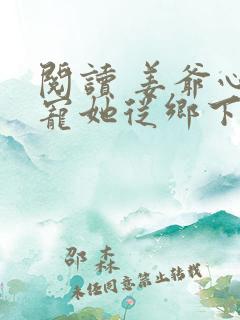 閱讀 姜爺心
寵她從鄉下
邵 森
未經同意禁止轉載